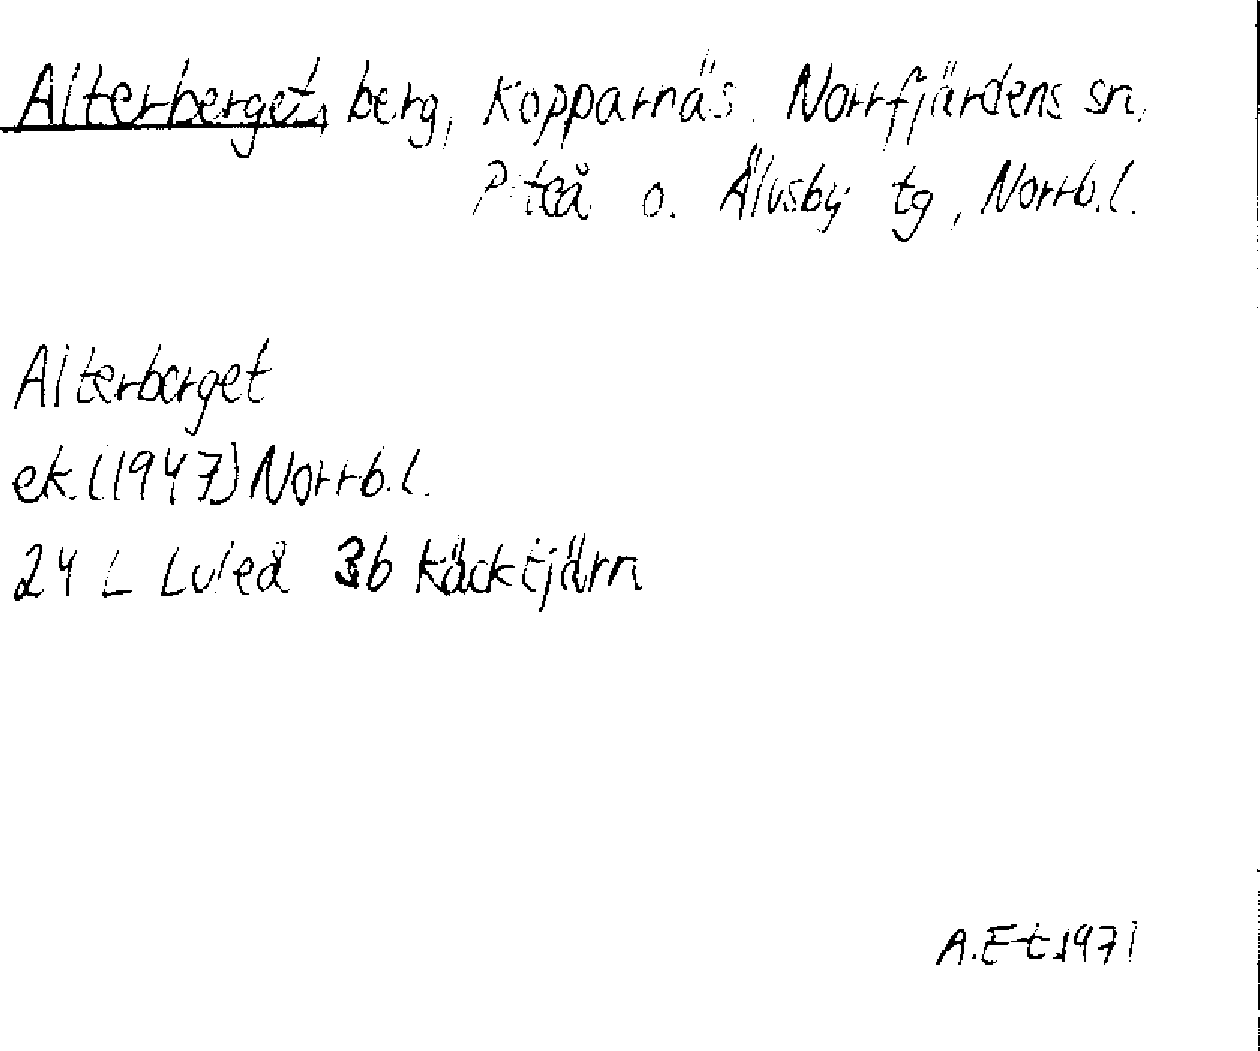 Alterberget, berg, Kopparnäs. Norrfjärdens sn,
Piteå o. Älvsby tg, Norrb.l.
Alterberget
ek.(1947) Norrb.l.
24 L Luleå 3b Käcktjärn
A.E-t 1971